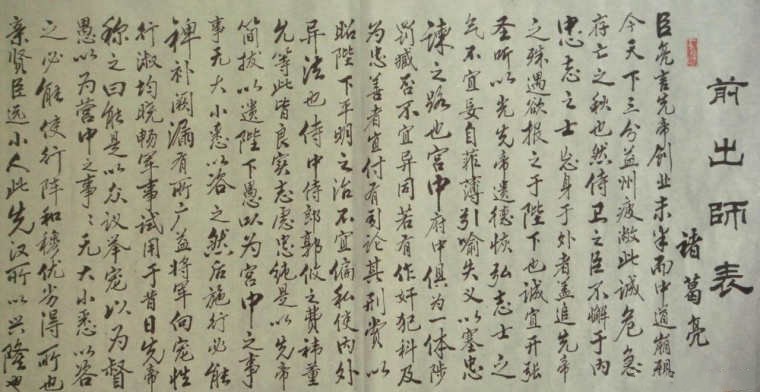 前出師表
諸葛亮
臣亮言先帝创业未半而中道崩殂
今天下三分益州疲敝此诚危急
存亡之秋也然侍卫之臣不懈于内
忠志之士忘身于外者盖追先帝
之殊遇欲报之于陛下也诚宜开张
圣听以光先帝遗德恢弘志士之
气不宜妄自菲薄引喻失义以塞忠
谏之路也宫中府中俱为一体陟
罚臧否不宜异同若有作奸犯科及
为忠善者宜付有司论其刑赏以
昭陛下平明之治不宜偏私使内外
异法也侍中侍郎郭攸之费祎董
允等此皆良实志虑忠纯是以先帝
简拔以遗陛下愚以为宫中之事
事无大小悉以咨之然后施行必能
裨补阙漏有所广益将军向宠性
行淑均晓畅军事试用于昔日先帝
称之曰能是以众议举宠以为督
愚以为营中之事々无大小悉以咨
之必能使行阵和穆优劣得所也
亲贤臣远小人此先汉所以兴隆也